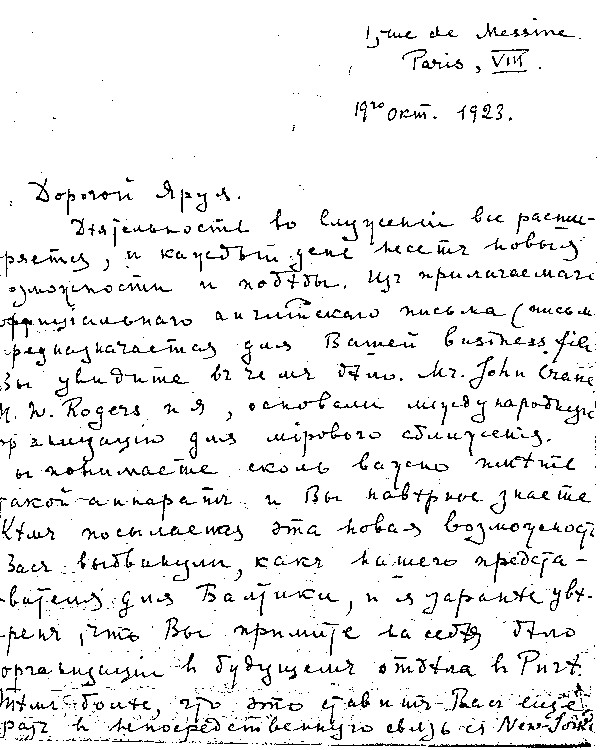 15 rue de Messine.
Paris, VIII.
19го окт. 1923.
Дорогой Яруя.
Дѣятельность во служеніи все расши-
ряется, и каждый день несетъ новыя
озможности и побѣды. Изъ прилагаемаго
оффиціальнаго англійскаго письма (письм
редназначается для Вашей business file
Вы увидите въ чемъ дѣло. Mr. John Crane
M. W. Rogers и я, основали международную
организацію для мірового сближенія.
ы понимаете сколь важно имѣть
такой аппаратъ и Вы навѣрное знаете
Кѣмъ посылается эта новая возможность
Васъ выдвинули, какъ нашего предста-
вителя для Балтики, и я заранѣе увѣ-
ренъ, что Вы примите на себя дѣло
организаціи въ будущемъ отдѣла въ Ригѣ.
Тѣмъ болѣе, что это ставитъ Васъ еще
разъ въ непосредственную связь съ New-York